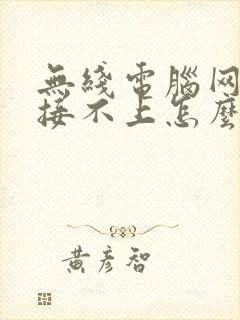 無綫電腦网
接不上怎麼
黃彥智